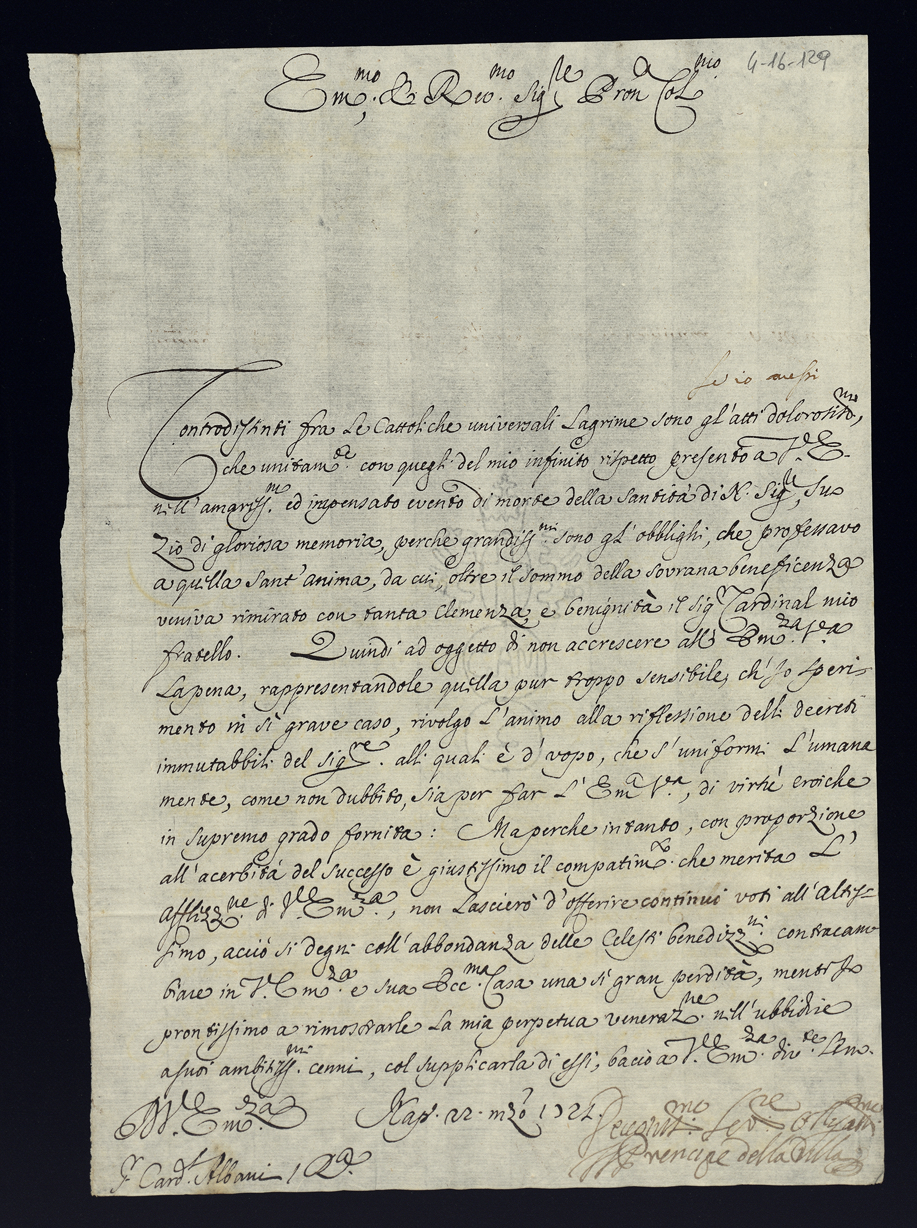 4-16-129
Em.mo & Rev.mo Sig.re Pron Col.mo
Controdistinti fra Le Cattoliche universali Lagrime sono gl'atti dolorosiss.mi,
che unitam.te con quegli del mio infinito rispetto presento a V.E.
nell'amariss.mo ed inpensato evento di morte della Santità di N. Sig.re, suo
Zio di gloriosa memoria, perche grandiss.mi sono gl'obblighi, che professavo
a quella Sant'anima, da cui, oltre il sommo della sovrana beneficenza
veniva rimirato con tanta Clemenza, e benignità il Sig.r Cardinal mio
fratello. Quindi ad oggetto di non accrescere all' Em.za V.a
La pena, rappresentandole quella pur troppo sensibile, ch'Io speri-
mento in sì grave caso, rivolgo L'animo alla riflessione delli decreti
immutabbili del Sig.re. alli quali è d'vopo, che s'uniformi L'umana
mente, come non dubbito, sia per far L'Em.a V.a, di virtù eroiche
in supremo grado fornita: Ma perche intanto, con proporzione
all'acerbità del successo è giustissimo il compatim.to che merita L'
afflizz.ne di V.E Em.za, non Lascierò d'offerire continui voti all'Altis-
simo, acciò si degni coll'abbondanza delle Celesti benedizz.ni contracam-
biare in V.Em.za e sua Ecc.ma Casa una sì gran perdità, mentr'Io
prontissimo a rimostrarle La mia perpetua veneraz.ne nell'ubbidire
a suoi ambitiss.mi cenni, col supplicarla di essi, bacio a V.E Em.za div.te Lem.
D.V.E Em.za Nap. 22. mzo 1721.
Devotiss.mo Ser.re Obligatis.mo
S.r Card.l Albani Prencipe della